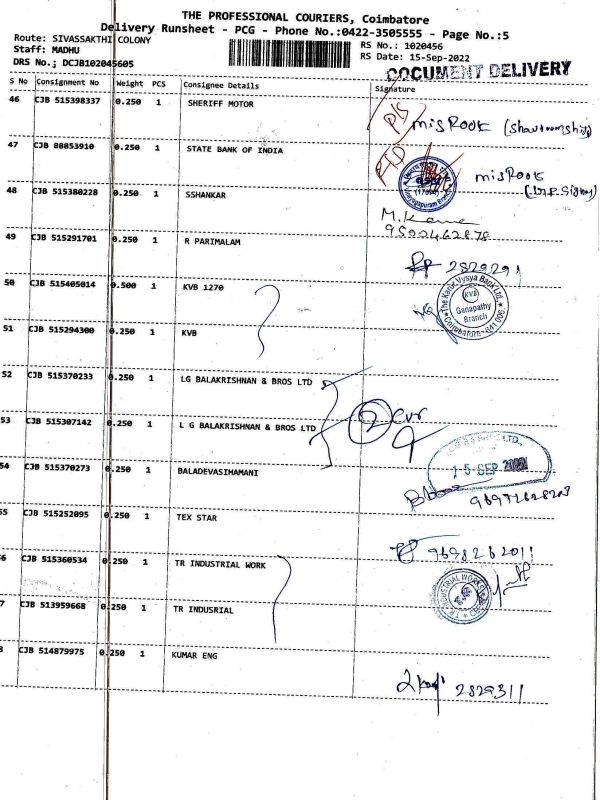 THE PROFESSIONAL COURIERS, Coimbatore
Delivery Runsheet - PCG - Phone No.:0422-3505555 - Page No.:5
Route: SIVASSAKTHI COLONY
Staff: MADHU
DRS No.; DCJB102045605
RS No.: 1020456
RS Date: 15-Sep-2022
DOCUMENT DELIVERY
S No Consignment No Weight PCS Consignee Details Signature
46 CJB 515398337 0.250 1 SHERIFF MOTOR
misRoot
47 CJB 88853910 0.250 1 STATE BANK OF INDIA
misRoot
48 CJB 515380228 0.250 1 SSHANKAR
49 CJB 515291701 0.250 1 R PARIMALAM
2829291
50 CJB 515405014 0.500 1 KVB 1270
The Karur Vysya Bank Ltd.
KVB
Ganapathy
Branch
Coimbatore - 641 006
51 CJB 515294300 0.250 1 KVB
52 CJB 515370233 0.250 1 LG BALAKRISHNAN & BROS LTD
2
53 CJB 515307142 0.250 1 L G BALAKRISHNAN & BROS LTD
15 SEP 2022
54 CJB 515370273 0.250 1 BALADEVASIHAMANI
55 CJB 515252095 0.250 1 TEX STAR
9698262011
6 CJB 515360534 0.250 1 TR INDUSTRIAL WORK
TR INDUSTRIAL WORKS
7 CJB 513959668 0.250 1 TR INDUSRIAL
8 CJB 514879975 0.250 1 KUMAR ENG
2829311